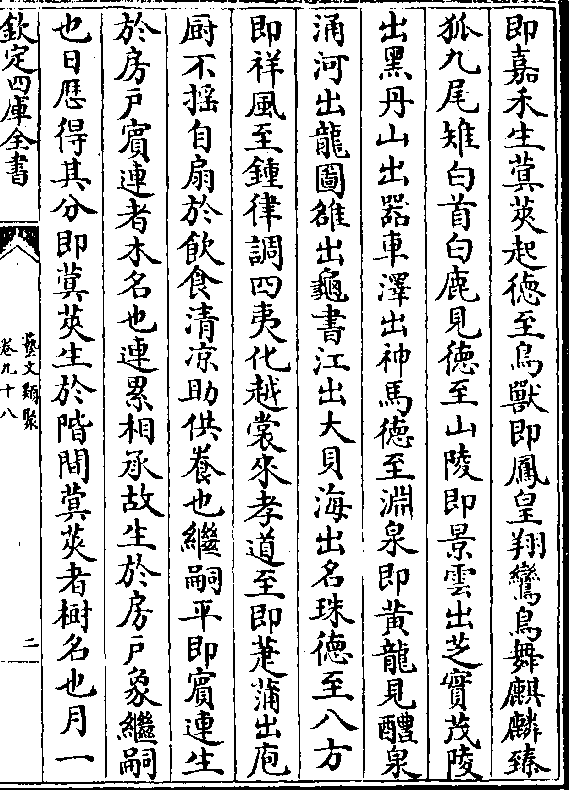 即嘉禾生蓂莢起徳至鳥獸即鳳皇翔鸞鳥舞麒麟臻
狐九尾雉白首白鹿見徳至山陵即景雲出芝實茂陵
出黑丹山出器車澤出神馬徳至淵泉即黄龍見醴泉
涌河出龍圖雒出龜書江出大貝海出名珠徳至八方
即祥風至鍾律調四夷化越裳來孝道至即萐蒲出庖
厨不摇自扇於飲食清凉助供養也繼嗣平即賔連生
於房戸賔連者木名也連累相承故生於房戸象繼嗣
也日厯得其分即蓂莢生於階間蓂莢者樹名也月一
欽定四庫全書
藝文類聚
卷九十八
二